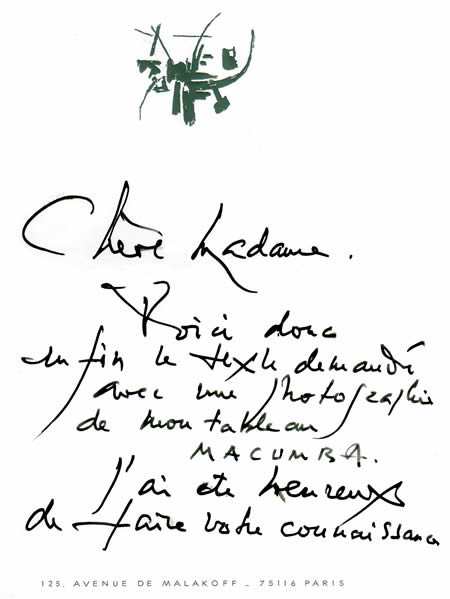 Chère Madame.
Voici donc
enfin le texte demandé
avec une photographie
de mon tableau
MACUMBA.
J'ai été heureux
de faire votre connaissance
125, AVENUE DE MALAKOFF _ 75116 PARIS